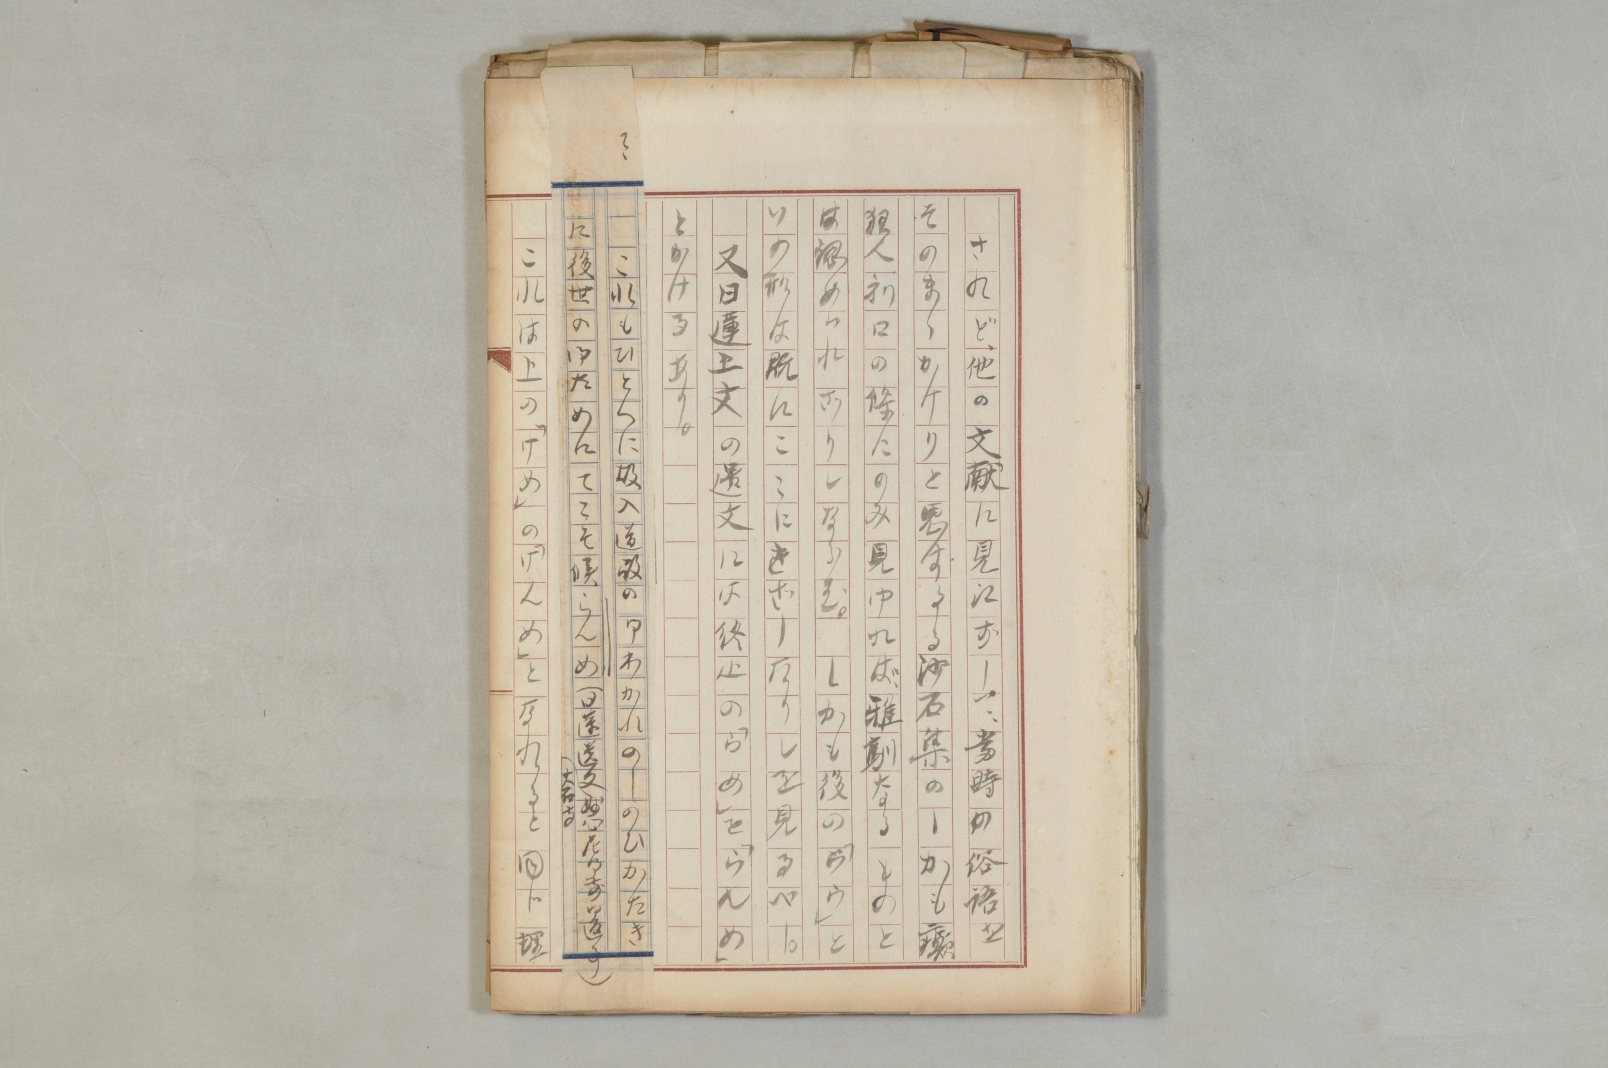 されど、他の文献に見江ずして、当時の俗語を
そのまゝかけりと思はるる沙石集のしかも癲
狂人利口の條にのみ見ゆれば、雅馴なるものと
は認められざりしならむ。しかも後の「ウ」と
いの形は既にここにきざしたりしを見るべし。
又日蓮上文の遺文には終止の「らめ」を「らんめ」
とかける あり。
ミ
これもひとへに故入道殿の 御わかれのしのひかたき
に後世の御ためにてこそ候らんめ(日蓮遺文 尼御前御返事)
(大石寺
これは上の「けめ」の「けんめ」となれると同じ理